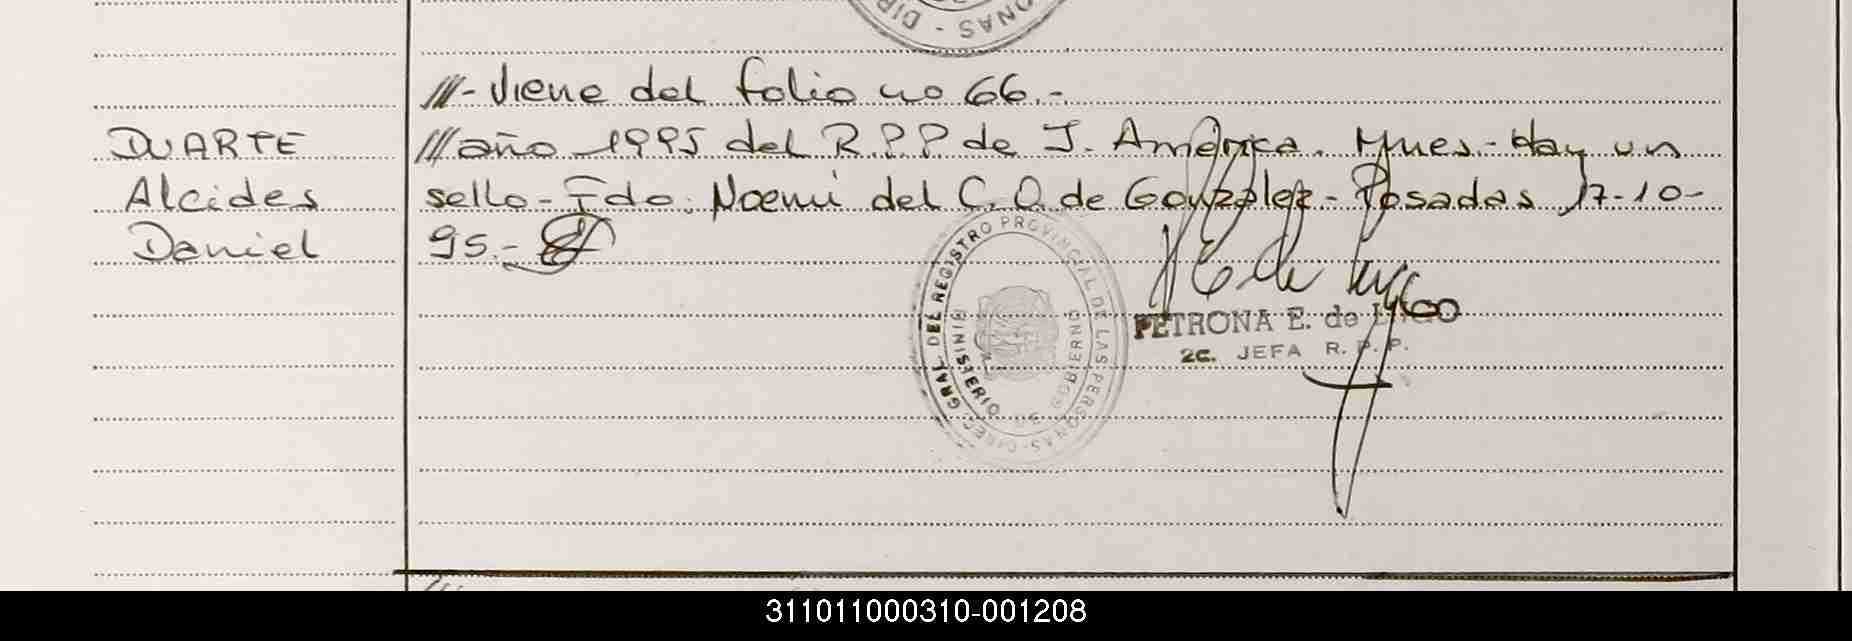 DIR - ONAS
///- Viene del folio no 66.-
DUARTE ///año 1995 del R.P.P de J. América. Mnes.- Hay un
Alcides sello- Fdo: Noemi del C. O. de Gonzalez- Posadas 17-10-
Daniel 95.-
DIREC. GRAL DEL REGISTRO PROVINCIAL DE LAS PERSONAS
MINISTERIO DE GOBIERNO
PETRONA E. de
2C. JEFA R. P. P.
311011000310-001208